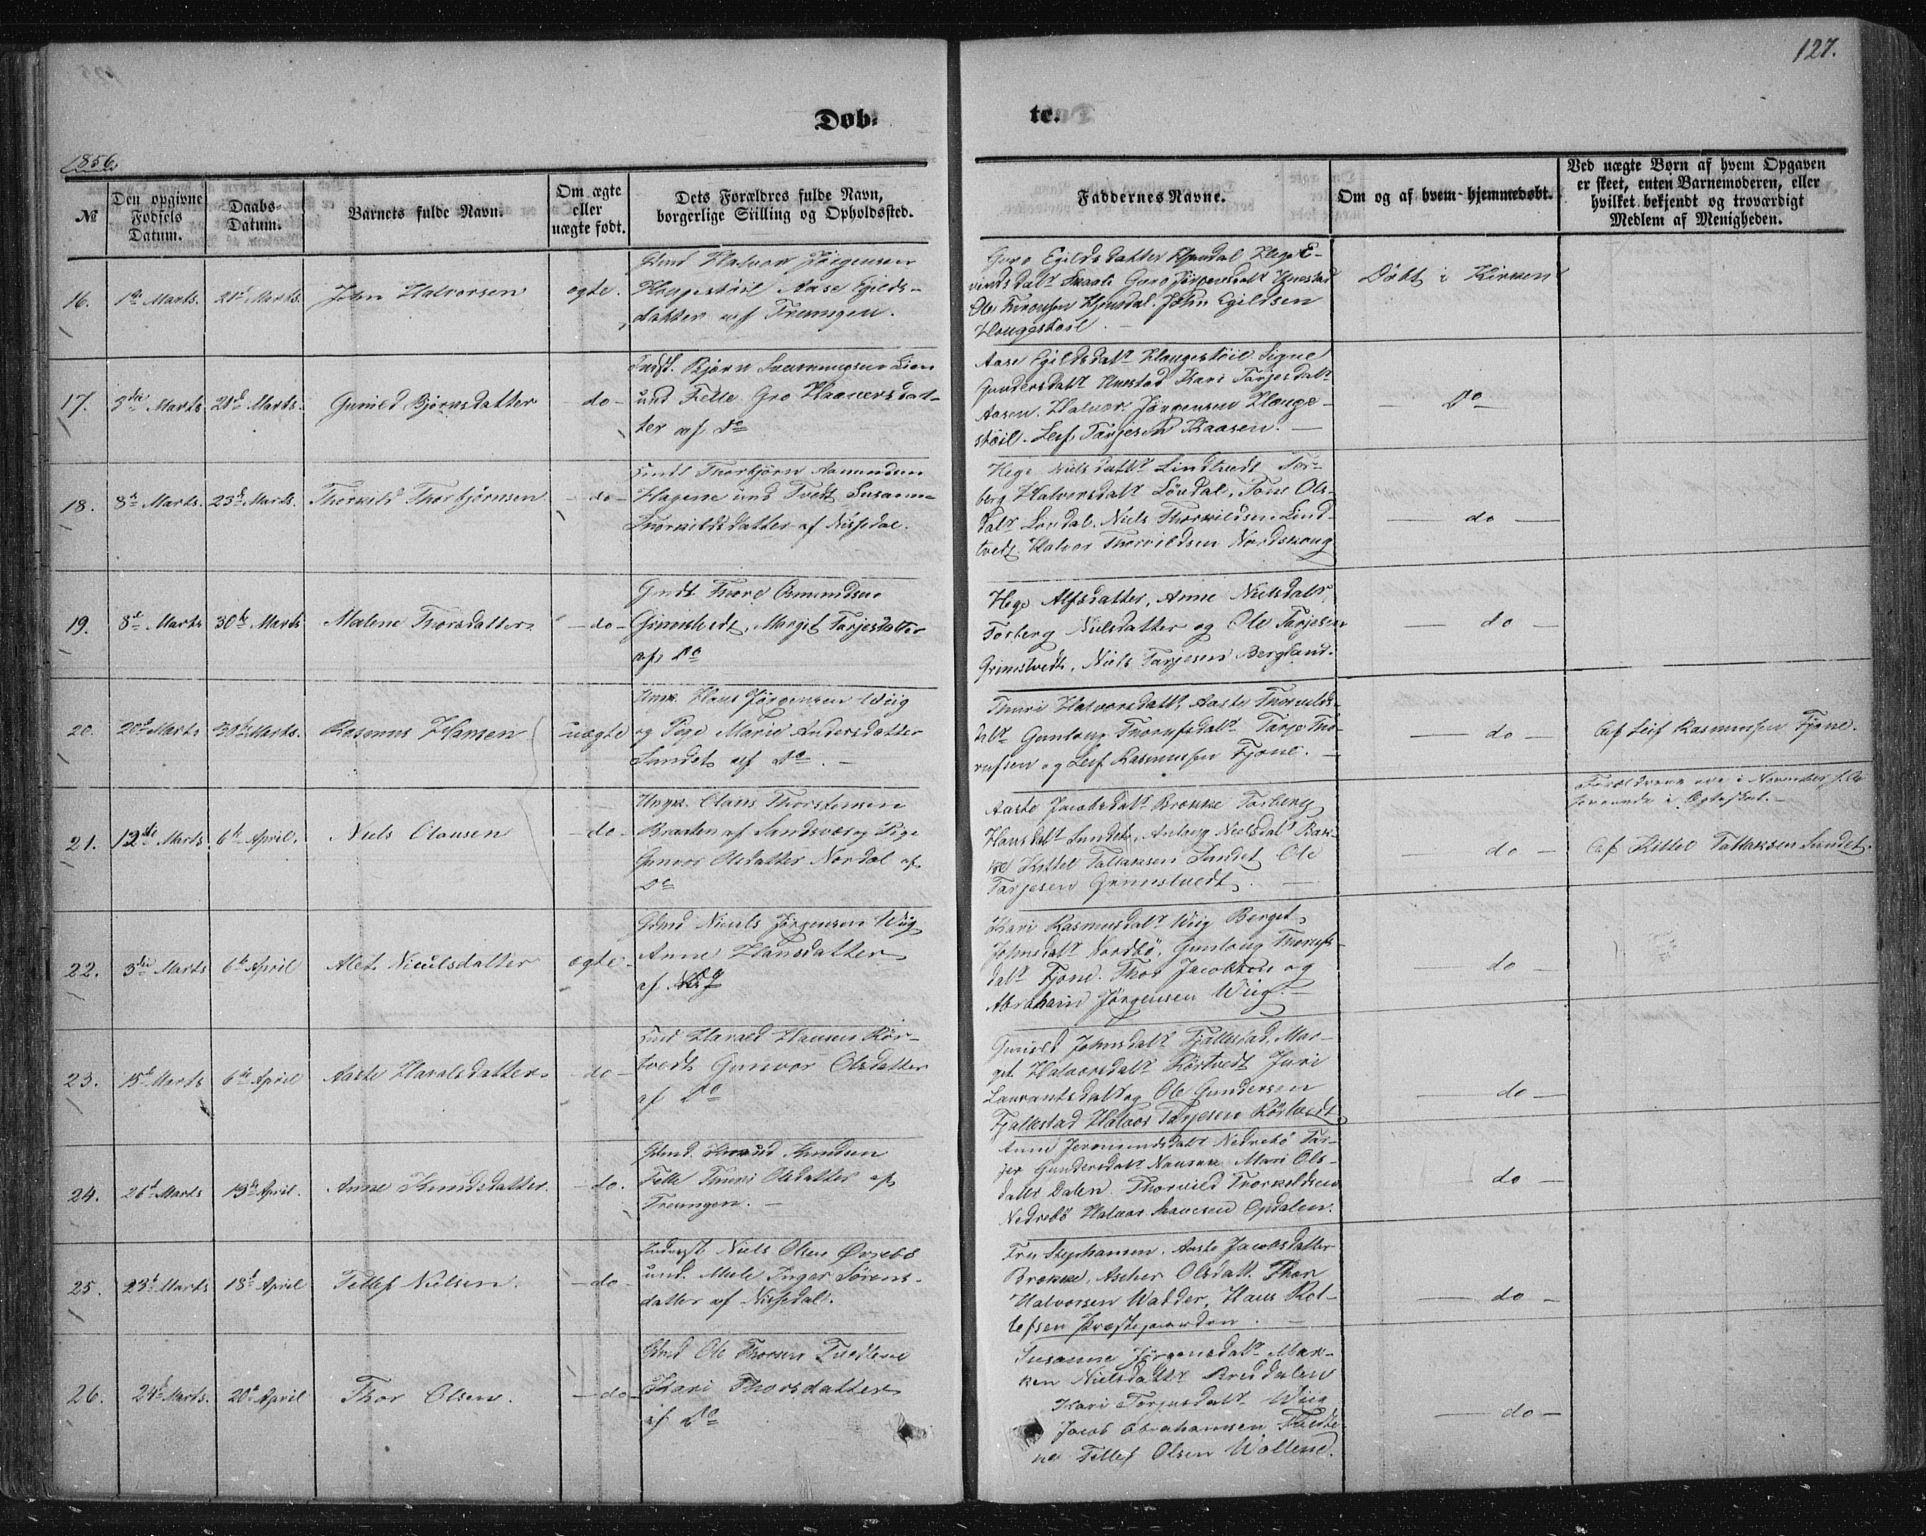 127.
Døb-
te.
1856.
№
Den opgivne Fødsels Datum.
Daabs-Datum.
Barnets fulde Navn.
Om ægte eller uægte født.
Dets Forældres fulde Navn, borgerlige Stilling og Opholdssted.
Faddernes Navne.
Om og af hvem hjemmedøbt.
Ved uægte Børn af hvem Opgaven er skeet, enten Barnemoderen, eller hvilket bekjendt og troværdigt Medlem af Menigheden.
16. 1ste Marts. 21de Marts. John Halvorsen ægte.
Gmd Halvor Jörgensen
Haugestöil Aase Egilds-
datter af Treungen.
Guro Egildsdatter Hege E-
vindsdatr Guro Jörgensdatr
Ole John Egildsen
Haugestöil.
Döbt i Kirken
17. 3die Marts. 21de Marts. Gunild Björnsdatter do
Björn
und Felle Gro
ter af Do
Aase Egildsdatr Haugestöil Signe
Gundersdatr Kari Tarjesdatr
Aasen. Halvor Jörgensen Hauge-
stöil. Leif Tarjesen Kaasen.
Do
18. 8de Marts. 23de Marts. Thorkild Thorbjörnsen do
Thorbjörn Aamundsen
Hagene und Tvedt Susanne
Thorkildsdatter af Nissedal.
Hege Nielsdatr Lindtvedt Tor-
berg Halvorsdatr Löndal, Tone Ols-
datr Londal. Niels Thorkildsen Lind-
tvedt. Halvor Thorkildsen Nordskoug
do
19. 8de Marts 30te Marts Malene Thorsdatter do
Thore Omundsen
Grimstvedt, Marget Tarjesdatter
af Do
Hege Alfsdatter, Anne Nielsdatr,
Torberg Nielsdatter og Ole Tarjesen
Grimstvedt, Niels Tarjesen Bergland.
do
20. 20de Marts 30te Marts. Rasmus Hansen uægte
Ungk. Hans Jörgensen Wiig
og Pige Marie Andersdatter
Sundet af Do.
Thuri Halvorsdatr Aaste Thorkilds-
datr Gunlaug Thorufsdatr Tarje Tho-
rufsen og Leif Rasmussen Fjone.
do
Af Leif Rasmussen Fjone.
21. 12te Marts 6te April. Niels Olausen do
Ungk. Olaus Thorstensen
Braaten af Sandsvær og Pige
Gunvor Olsdatter Nordal af
Do
Aaste Jacobsdatr Brekke Torberg
Hansdatr Sundet, Anlaug Nielsdatr Bræk-
ke Kittel Tallaksen Sundet Ole
Tarjesen Grimstvedt.
do
Forældrene ere i November
Af Kittel Tallaksen Sundet.
22. 3die Marts 6te April Alet Nieulsdatter ægte
Gmd Nieuls Jörgensen Wiig
Anne Hansdatter
af
Kari Rasmusdatr Wiig Berget
Johnsdatr Nordbö, Gunlaug Thorufs-
datr Fjone. Thor Jacobsen og
Abraham Jörgensen Wiig.
do
23. 15de Marts 6te April Aaste Haraldsdatter do
Harald Hansen Rör-
tvedt Gunvor Olsdatter
af Do
Gunild Johnsdatr Fjallestad, Mar-
get Halvorsdatr Rörtvedt Juri
Laurantsdatr og Ole Gundersen
Fjallestad Halvor Tarjesen Rörtvedt
do
24. 26de Marts 13de April. Anne Knudsdatter. do.
Gmd. Knud Knudsen
Felle Thuri Olsdatter af
Treungen.
Anne Jeromundsdatr Nedrebö Tar-
jer Gundersdatr Mari Ols-
datter Dalen. Thorkild Thorkeldsen
Nedrebö Halvor Opdalen.
do
25. 23de Marts 18de April Tellef Nielsen. do
Niels Olsen Övrebö
und. Mule Inger Sörens-
datter af Nissedal.
Fru Stephansen. Aaste Jacobsdatter
Brekke, Olsdatr. Thor
Halvorsen Wadder, Hans Rol-
lefsen Præstegaarden.
do
26. 24de Marts. 20de April Thor Olsen. do
Gmd Ole Thorsen Tvedtene
Kari Thorsdatter
af Do
Susanne Jörgensdatr Mar-
ken Nielsdatr Bredalen
Kari Torjusdatr Wiig
Jacob Abrahamsen Tvedte-
ne Tellef Olsen Wallene.
do